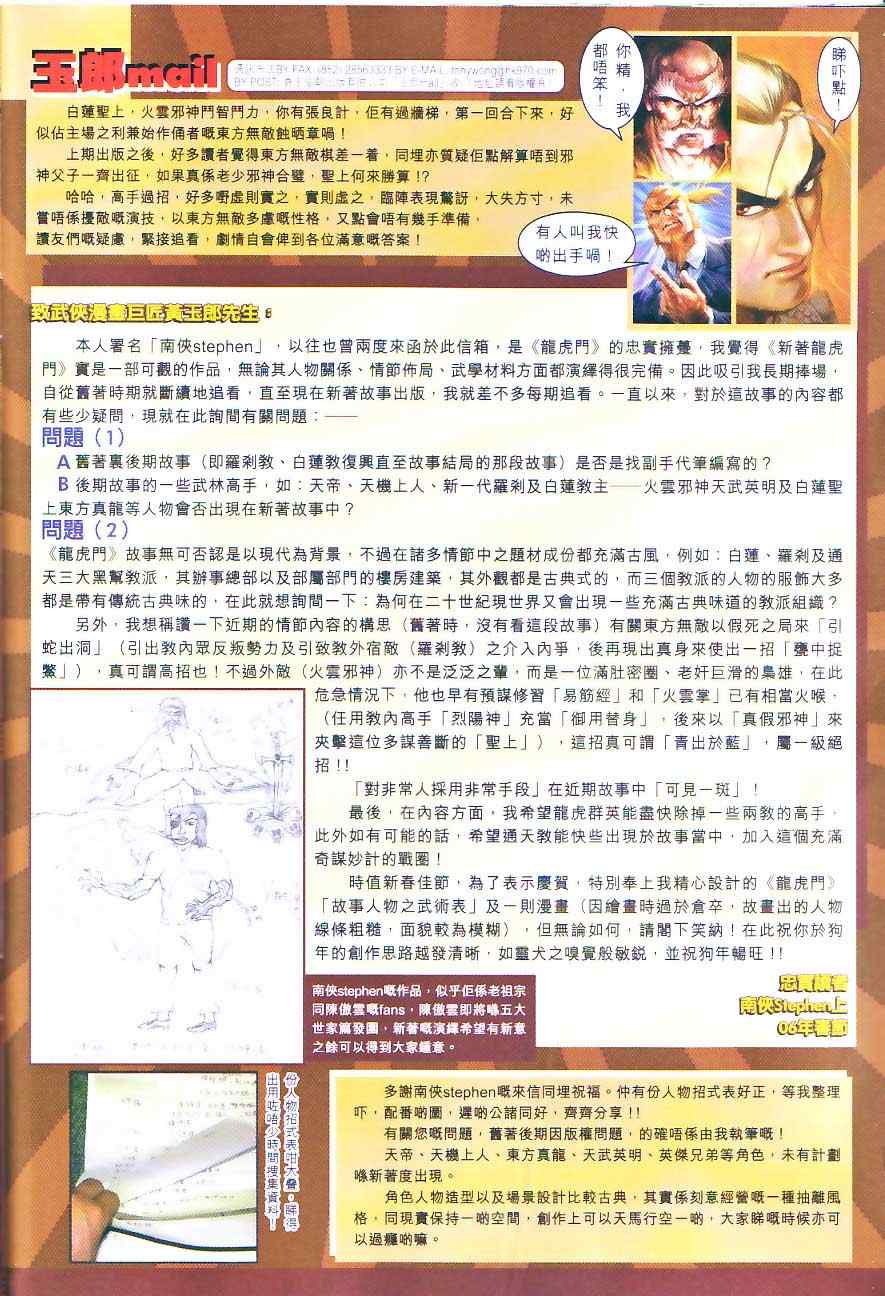 玉郎mail
BY FAX: (852) 28563333 BY E-MAIL: tonywong@hk970.com
BY POST:
你精，我
都唔笨！
睇吓點！
有人叫我快
啲出手喎！
白蓮聖上，火雲邪神鬥智鬥力，你有張良計，佢有過牆梯，第一回合下來，好
似佔主場之利兼始作俑者嘅東方無敵蝕晒章喎！
上期出版之後，好多讀者覺得東方無敵棋差一着，同埋亦質疑佢點解算唔到邪
神父子一齊出征，如果真係老少邪神合璧，聖上何來勝算!?
哈哈，高手過招，好多嘢虛則實之，實則虛之，臨陣表現驚訝，大失方寸，未
嘗唔係擾敵嘅演技，以東方無敵多慮嘅性格，又點會唔有幾手準備，
讀友們嘅疑慮，緊接追看，劇情自會俾到各位滿意嘅答案！
致武俠漫畫巨匠黃玉郎先生：
本人署名「南俠stephen」，以往也曾兩度來函於此信箱，是《龍虎門》的忠實擁躉，我覺得《新著龍虎
門》實是一部可觀的作品，無論其人物關係、情節佈局、武學材料方面都演繹得很完備。因此吸引我長期捧場，
自從舊著時期就斷續地追看，直至現在新著故事出版，我就差不多每期追看。一直以來，對於這故事的內容都
有些少疑問，現就在此詢問有關問題：——
問題（1）
A 舊著裏後期故事（即羅刹教、白蓮教復興直至故事結局的那段故事）是否是找副手代筆編寫的？
B 後期故事的一些武林高手，如：天帝、天機上人、新一代羅刹及白蓮教主——火雲邪神天武英明及白蓮聖
上東方真龍等人物會否出現在新著故事中？
問題（2）
《龍虎門》故事無可否認是以現代為背景，不過在諸多情節中之題材成份都充滿古風，例如：白蓮、羅刹及通
天三大黑幫教派，其辦事總部以及部屬部門的樓房建築，其外觀都是古典式的，而三個教派的人物的服飾大多
都是帶有傳統古典味的，在此就想詢問一下：為何在二十世紀現世界又會出現一些充滿古典味道的教派組織？
另外，我想稱讚一下近期的情節內容的構思（舊著時，沒有看這段故事）有關東方無敵以假死之局來「引
蛇出洞」（引出教內眾反叛勢力及引致教外宿敵（羅剎教）之介入內爭，後再現出真身來使出一招「甕中捉
鱉」），真可謂高招也！不過外敵（火雲邪神）亦不是泛泛之輩，而是一位滿肚密圈、老奸巨滑的梟雄，在此
危急情況下，他也早有預謀修習「易筋經」和「火雲掌」已有相當火喉，
（任用教內高手「烈陽神」充當「御用替身」，後來以「真假邪神」來
夾擊這位多謀善斷的「聖上」），這招真可謂「青出於藍」，屬一級絕
招！!
「對非常人採用非常手段」在近期故事中「可見一斑」！
最後，在內容方面，我希望龍虎群英能盡快除掉一些兩教的高手，
此外如有可能的話，希望通天教能快些出現於故事當中，加入這個充滿
奇謀妙計的戰圈！
時值新春佳節，為了表示慶賀，特別奉上我精心設計的《龍虎門》
「故事人物之武術表」及一則漫畫（因繪畫時過於倉卒，故畫出的人物
線條粗糙，面貌較為模糊），但無論如何，請閣下笑納！在此祝你於狗
年的創作思路越發清晰，如靈犬之嗅覺般敏銳，並祝狗年暢旺！!
忠實讀者
南俠Stephen上
06年春節
南俠stephen嘅作品，似乎佢係老祖宗
同陳傲雲嘅fans，陳傲雲即將喺五大
世家篇發圍，新著嘅演繹希望有新意
之餘可以得到大家鍾意。
份人物招式表咁大叠，睇得
出用咗唔少時間搜集資料！
多謝南俠stephen嘅來信同埋祝福。仲有份人物招式表好正，等我整理
吓，配番啲圖，遲啲公諸同好，齊齊分享！!
有關您嘅問題，舊著後期因版權問題，的確唔係由我執筆嘅！
天帝、天機上人、東方真龍、天武英明、英傑兄弟等角色，未有計劃
喺新著度出現。
角色人物造型以及場景設計比較古典，其實係刻意經營嘅一種抽離風
格，同現實保持一啲空間，創作上可以天馬行空一啲，大家睇嘅時候亦可
以過癮啲嘛。